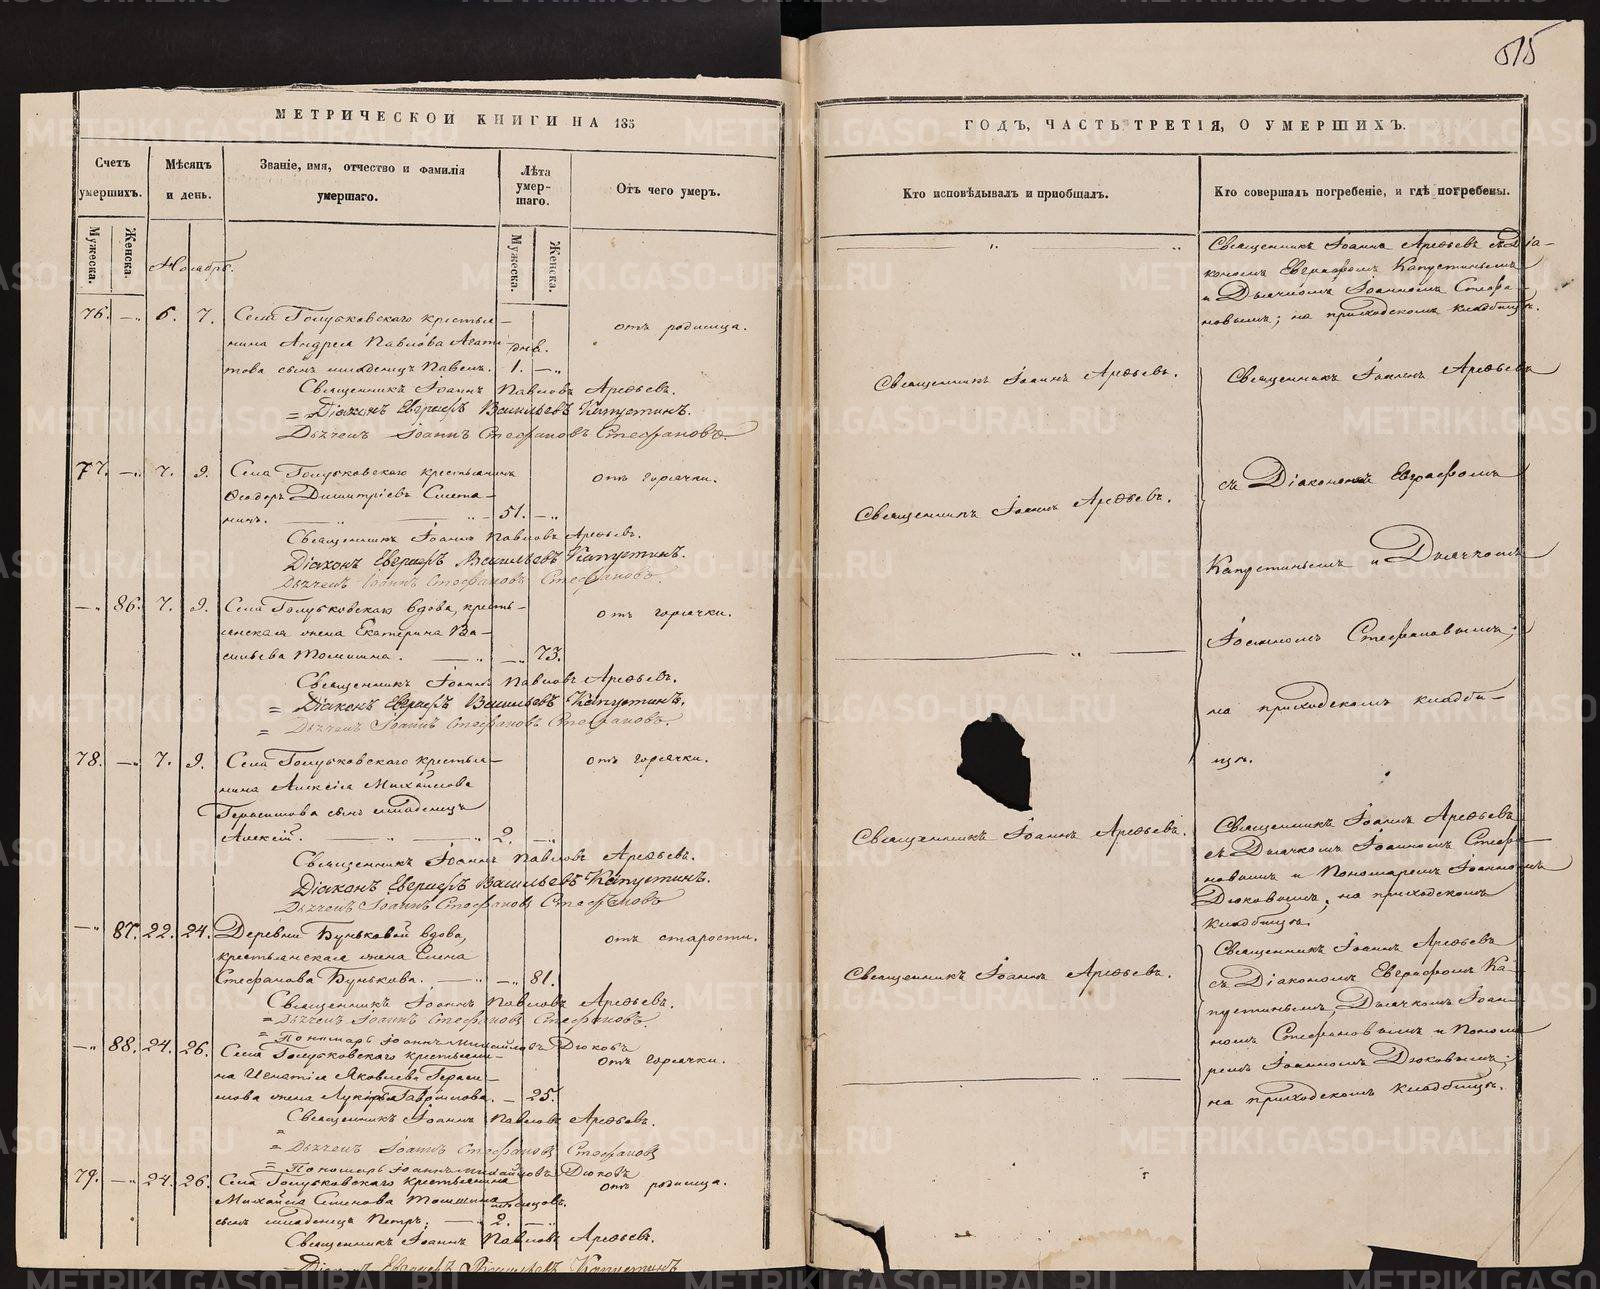 515
МЕТРИЧЕСКОЙ КНИГИ НА 185
Счетъ умершихъ.
Мужеска.
Женска.
Мѣсяцъ и день.
Званіе, имя, отчество и фамилія умершаго.
Лѣта умер-шаго.
Мужеска.
Женска.
Отъ чего умеръ.
Ноябрь.
76. —„ 6. 7. Села Голубковскаго крестья-
нина Андрея Павлова
сынъ младенецъ Павелъ. днв. 1. —„ отъ родимца.
Священникъ Іоаннъ Павловъ Арефьевъ.
= Діаконъ Евграфъ Васильевъ Капустинъ.
Дьячекъ Іоаннъ Стефановъ Стефановъ.
77. —„ 7. 9. Села Голубковскаго крестьянинъ
Ѳеодоръ Димитріевъ Смета-
нинъ. 51. —„ отъ горячки.
Священникъ Іоаннъ Павловъ Арефьевъ.
Діаконъ Евграфъ Васильевъ Капустинъ.
Дьячекъ Іоаннъ Стефановъ Стефановъ.
—„ 86. 7. 9. Села Голубковскаго вдова, кресть-
янская жена Екатерина Ва-
сильева Томшина. —„ 73. отъ горячки.
Священникъ Іоаннъ Павловъ Арефьевъ.
= Діаконъ Евграфъ Васильевъ Капустинъ.
= Дьячекъ Іоаннъ Стефановъ Стефановъ.
78. —„ 7. 9. Села Голубковскаго крестья-
нина Алексія Михайлова
Герасимова сынъ младенецъ
Алексій. 2. —„ отъ горячки.
Священникъ Іоаннъ Павловъ Арефьевъ.
Діаконъ Евграфъ Васильевъ Капустинъ.
Дьячекъ Іоаннъ Стефановъ Стефановъ
—„ 87. 22. 24. Деревни Буньковой вдова,
крестьянская жена Елена
Стефанова Бунькова. —„ 81. отъ старости.
Священникъ Іоаннъ Павловъ Арефьевъ.
= Дьячекъ Іоаннъ Стефановъ Стефановъ.
= Пономарь Іоаннъ Михайловъ Дюковъ
—„ 88. 24. 26. Села Голубковскаго крестьяни-
на Игнатія Яковлева Гераси-
мова жена Лукерья Гаврилова. — 25. отъ горячки.
Священникъ Іоаннъ Павловъ Арефьевъ.
= Дьячекъ Іоаннъ Стефановъ Стефановъ
= Пономарь Іоаннъ Михайловъ Дюковъ
79. —„ 24. 26. Села Голубковскаго крестьянина
Михайла Семенова Томшина
сынъ младенецъ Петръ; мѣсяцовъ. 2. —„ отъ родимца.
Священникъ Іоаннъ Павловъ Арефьевъ.
= Діаконъ Евграфъ Васильевъ Капустинъ
ГОДЪ, ЧАСТЬ ТРЕТІЯ, О УМЕРШИХЪ.
Кто исповѣдывалъ и пріобщалъ.
Кто совершалъ погребеніе, и гдѣ погребены.
Священникъ Іоаннъ Арефьевъ.
Священникъ Іоаннъ Арефьевъ.
Священникъ Іоаннъ Арефьевъ.
Священникъ Іоаннъ Арефьевъ.
Священникъ Іоаннъ Арефьевъ съ Діа-
кономъ Евграфомъ Капустинымъ
и Дьячкомъ Іоанномъ Стефа-
новымъ; на приходскомъ кладбищѣ.
Священникъ Іоаннъ Арефьевъ
съ Діакономъ Евграфомъ
Капустинымъ и Дьячкомъ
Іоанномъ Стефановымъ;
на приходскомъ кладби-
щѣ.
Священникъ Іоаннъ Арефьевъ
съ Дьячкомъ Іоанномъ Стефа-
новымъ и Пономаремъ Іоанномъ
Дюковымъ, на приходскомъ
кладбищѣ.
Священникъ Іоаннъ Арефьевъ
съ Діакономъ Евграфомъ Ка-
пустинымъ, Дьячкомъ Іоан-
номъ Стефановымъ и Понома-
ремъ Іоанномъ Дюковымъ;
на приходскомъ кладбищѣ.
METRIKI.GASO-URAL.RU